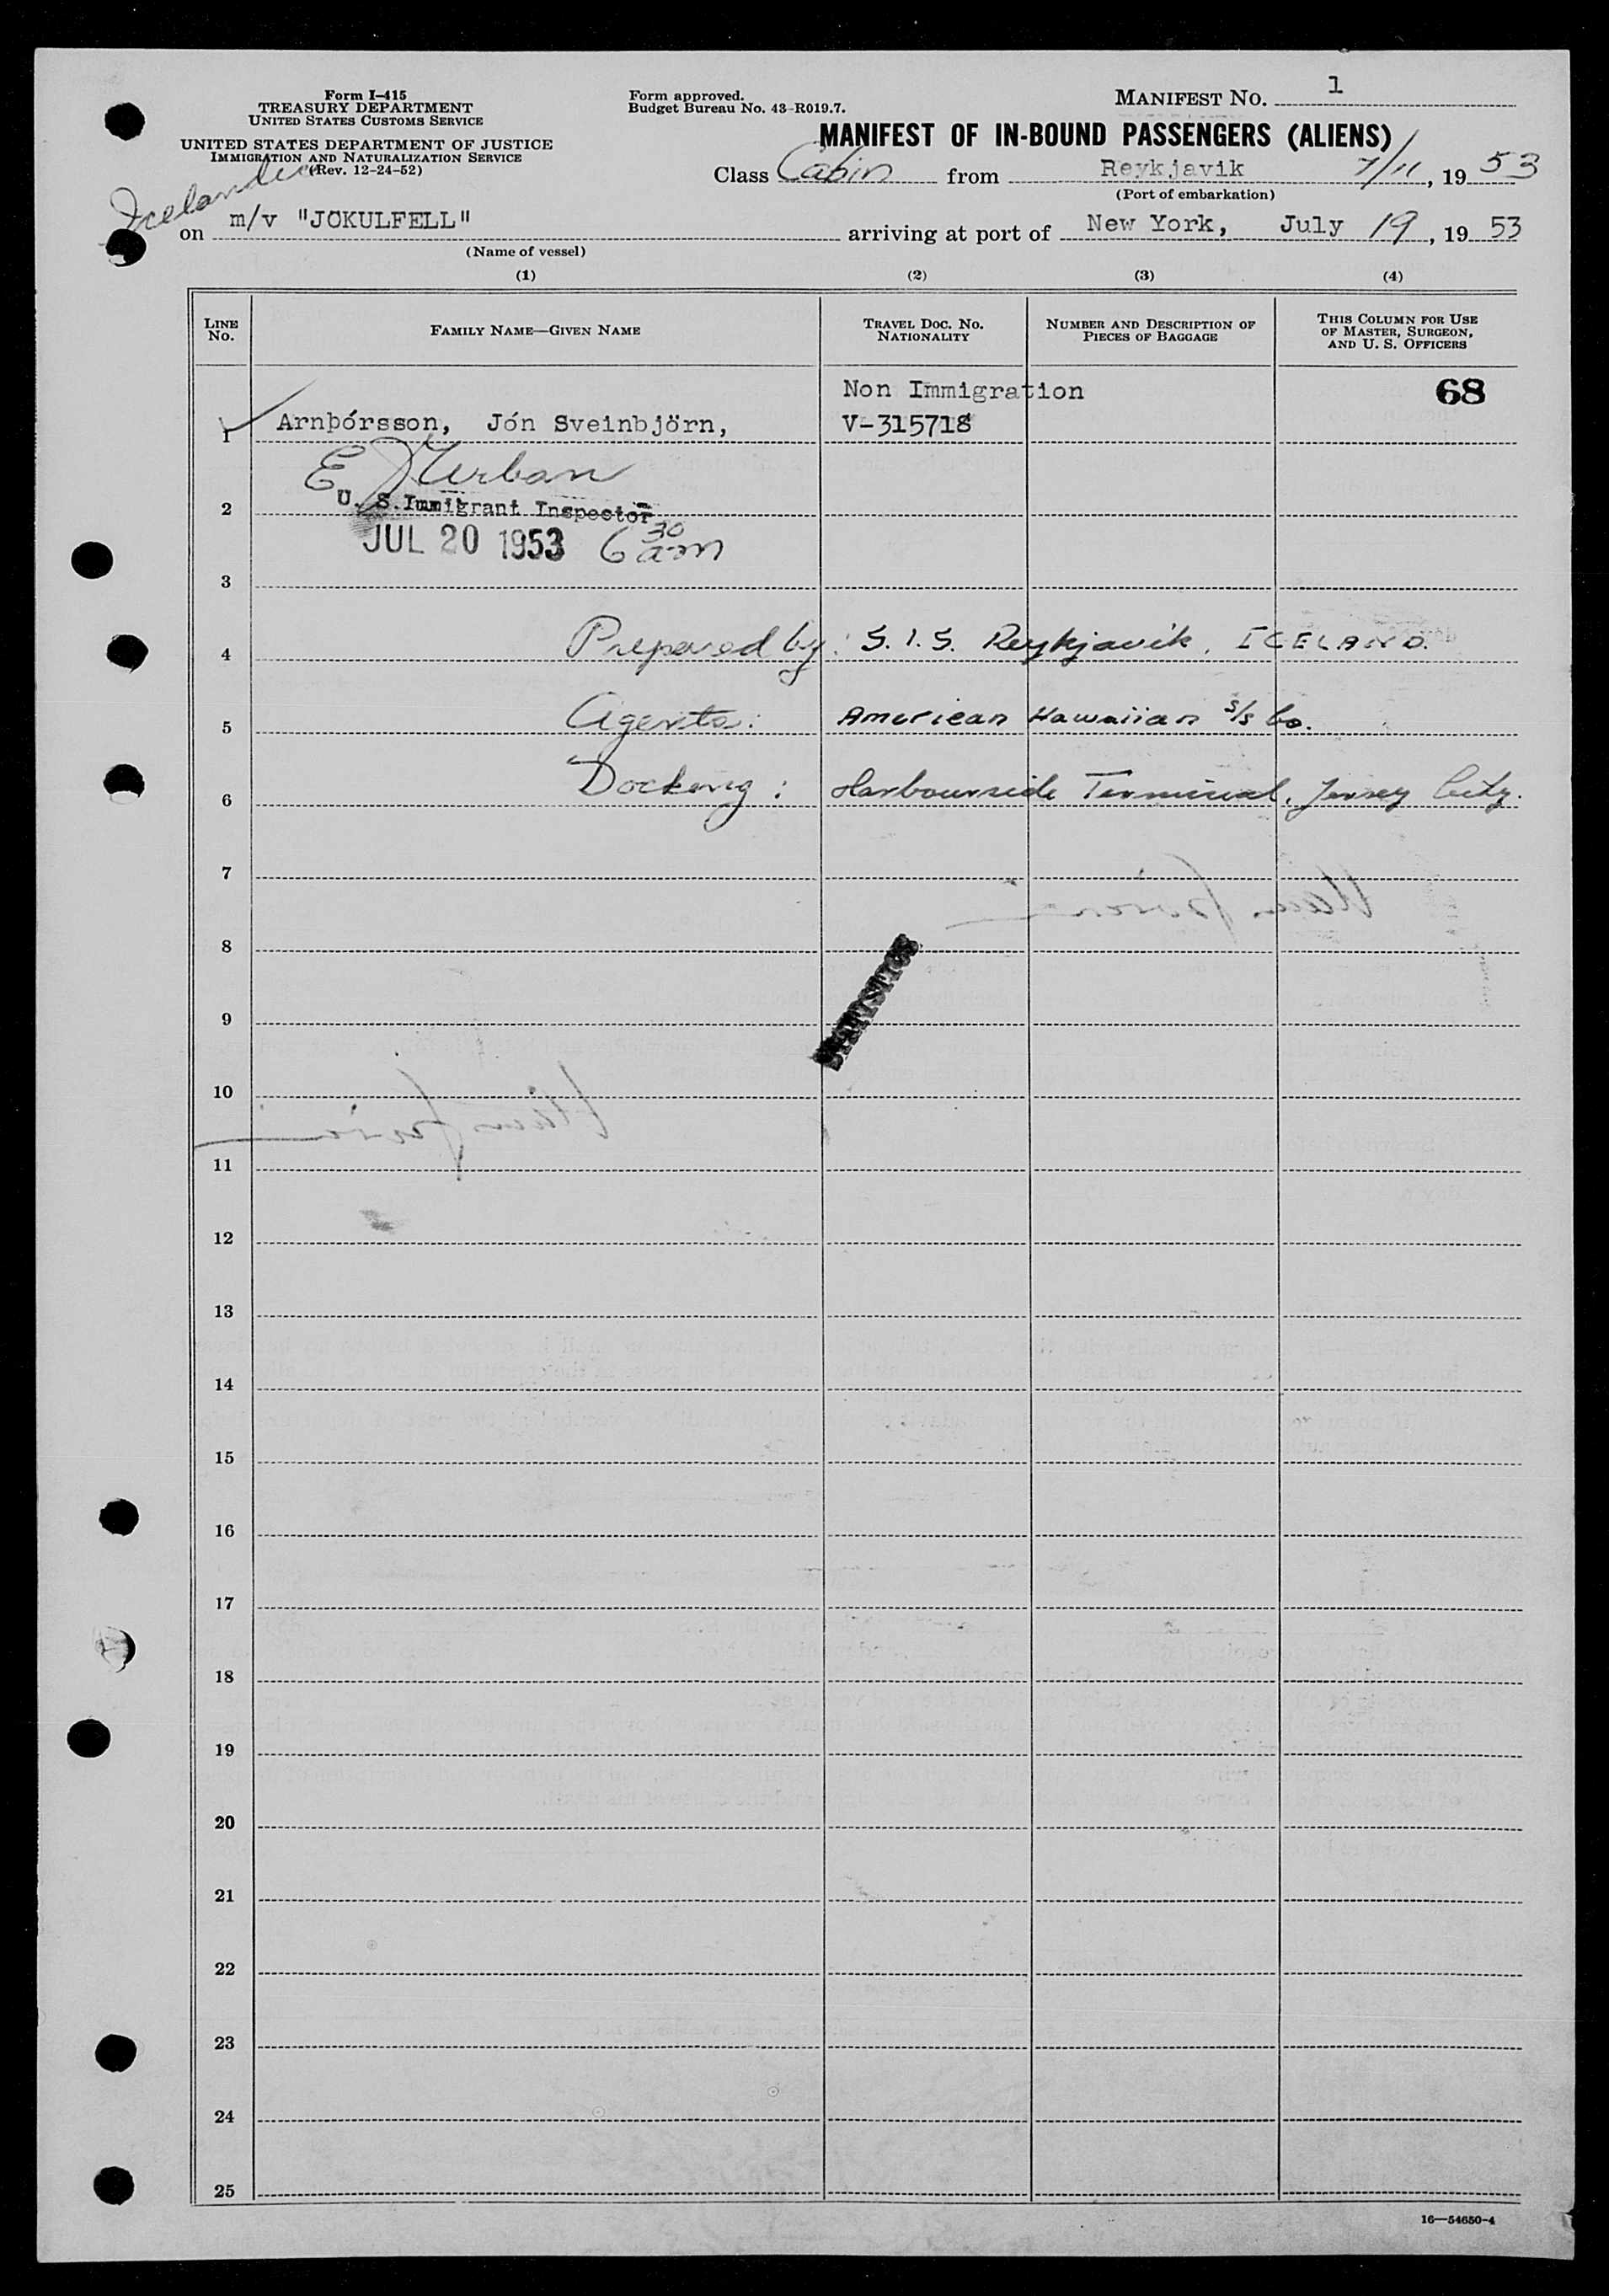 Form I-415
TREASURY DEPARTMENT
UNITED STATES CUSTOMS SERVICE
UNITED STATES DEPARTMENT OF JUSTICE
IMMIGRATION AND NATURALIZATION SERVICE
(Rev. 12-24-52)
Form approved.
Budget Bureau No. 43-R019.7.
MANIFEST NO. 1
MANIFEST OF IN-BOUND PASSENGERS (ALIENS)
Class Cabin from Reykjavik 7/11, 1953
(Port of embarkation)
Icelandic
on m/v "JOKULFELL" arriving at port of New York, July 19, 1953
(Name of vessel)
(1) (2) (3) (4)
LINE No. FAMILY NAME—GIVEN NAME TRAVEL DOC. NO. NATIONALITY NUMBER AND DESCRIPTION OF PIECES OF BAGGAGE THIS COLUMN FOR USE OF MASTER, SURGEON, AND U. S. OFFICERS
Non Immigration 68
1 Arnþórsson, Jón Sveinbjörn, V-315718
E Urban
2 U. S. Immigrant Inspector
JUL 20 1953 6 30 am
3
4 Prepared by: S.I.S. Reykjavik, ICELAND.
5 Agents: American Hawaiian s/s Co.
6 Docking: Harbourside Terminal, Jersey City.
7
8
STATISTICS
9
10
11
12
13
14
15
16
17
18
19
20
21
22
23
24
25
16—54650-4